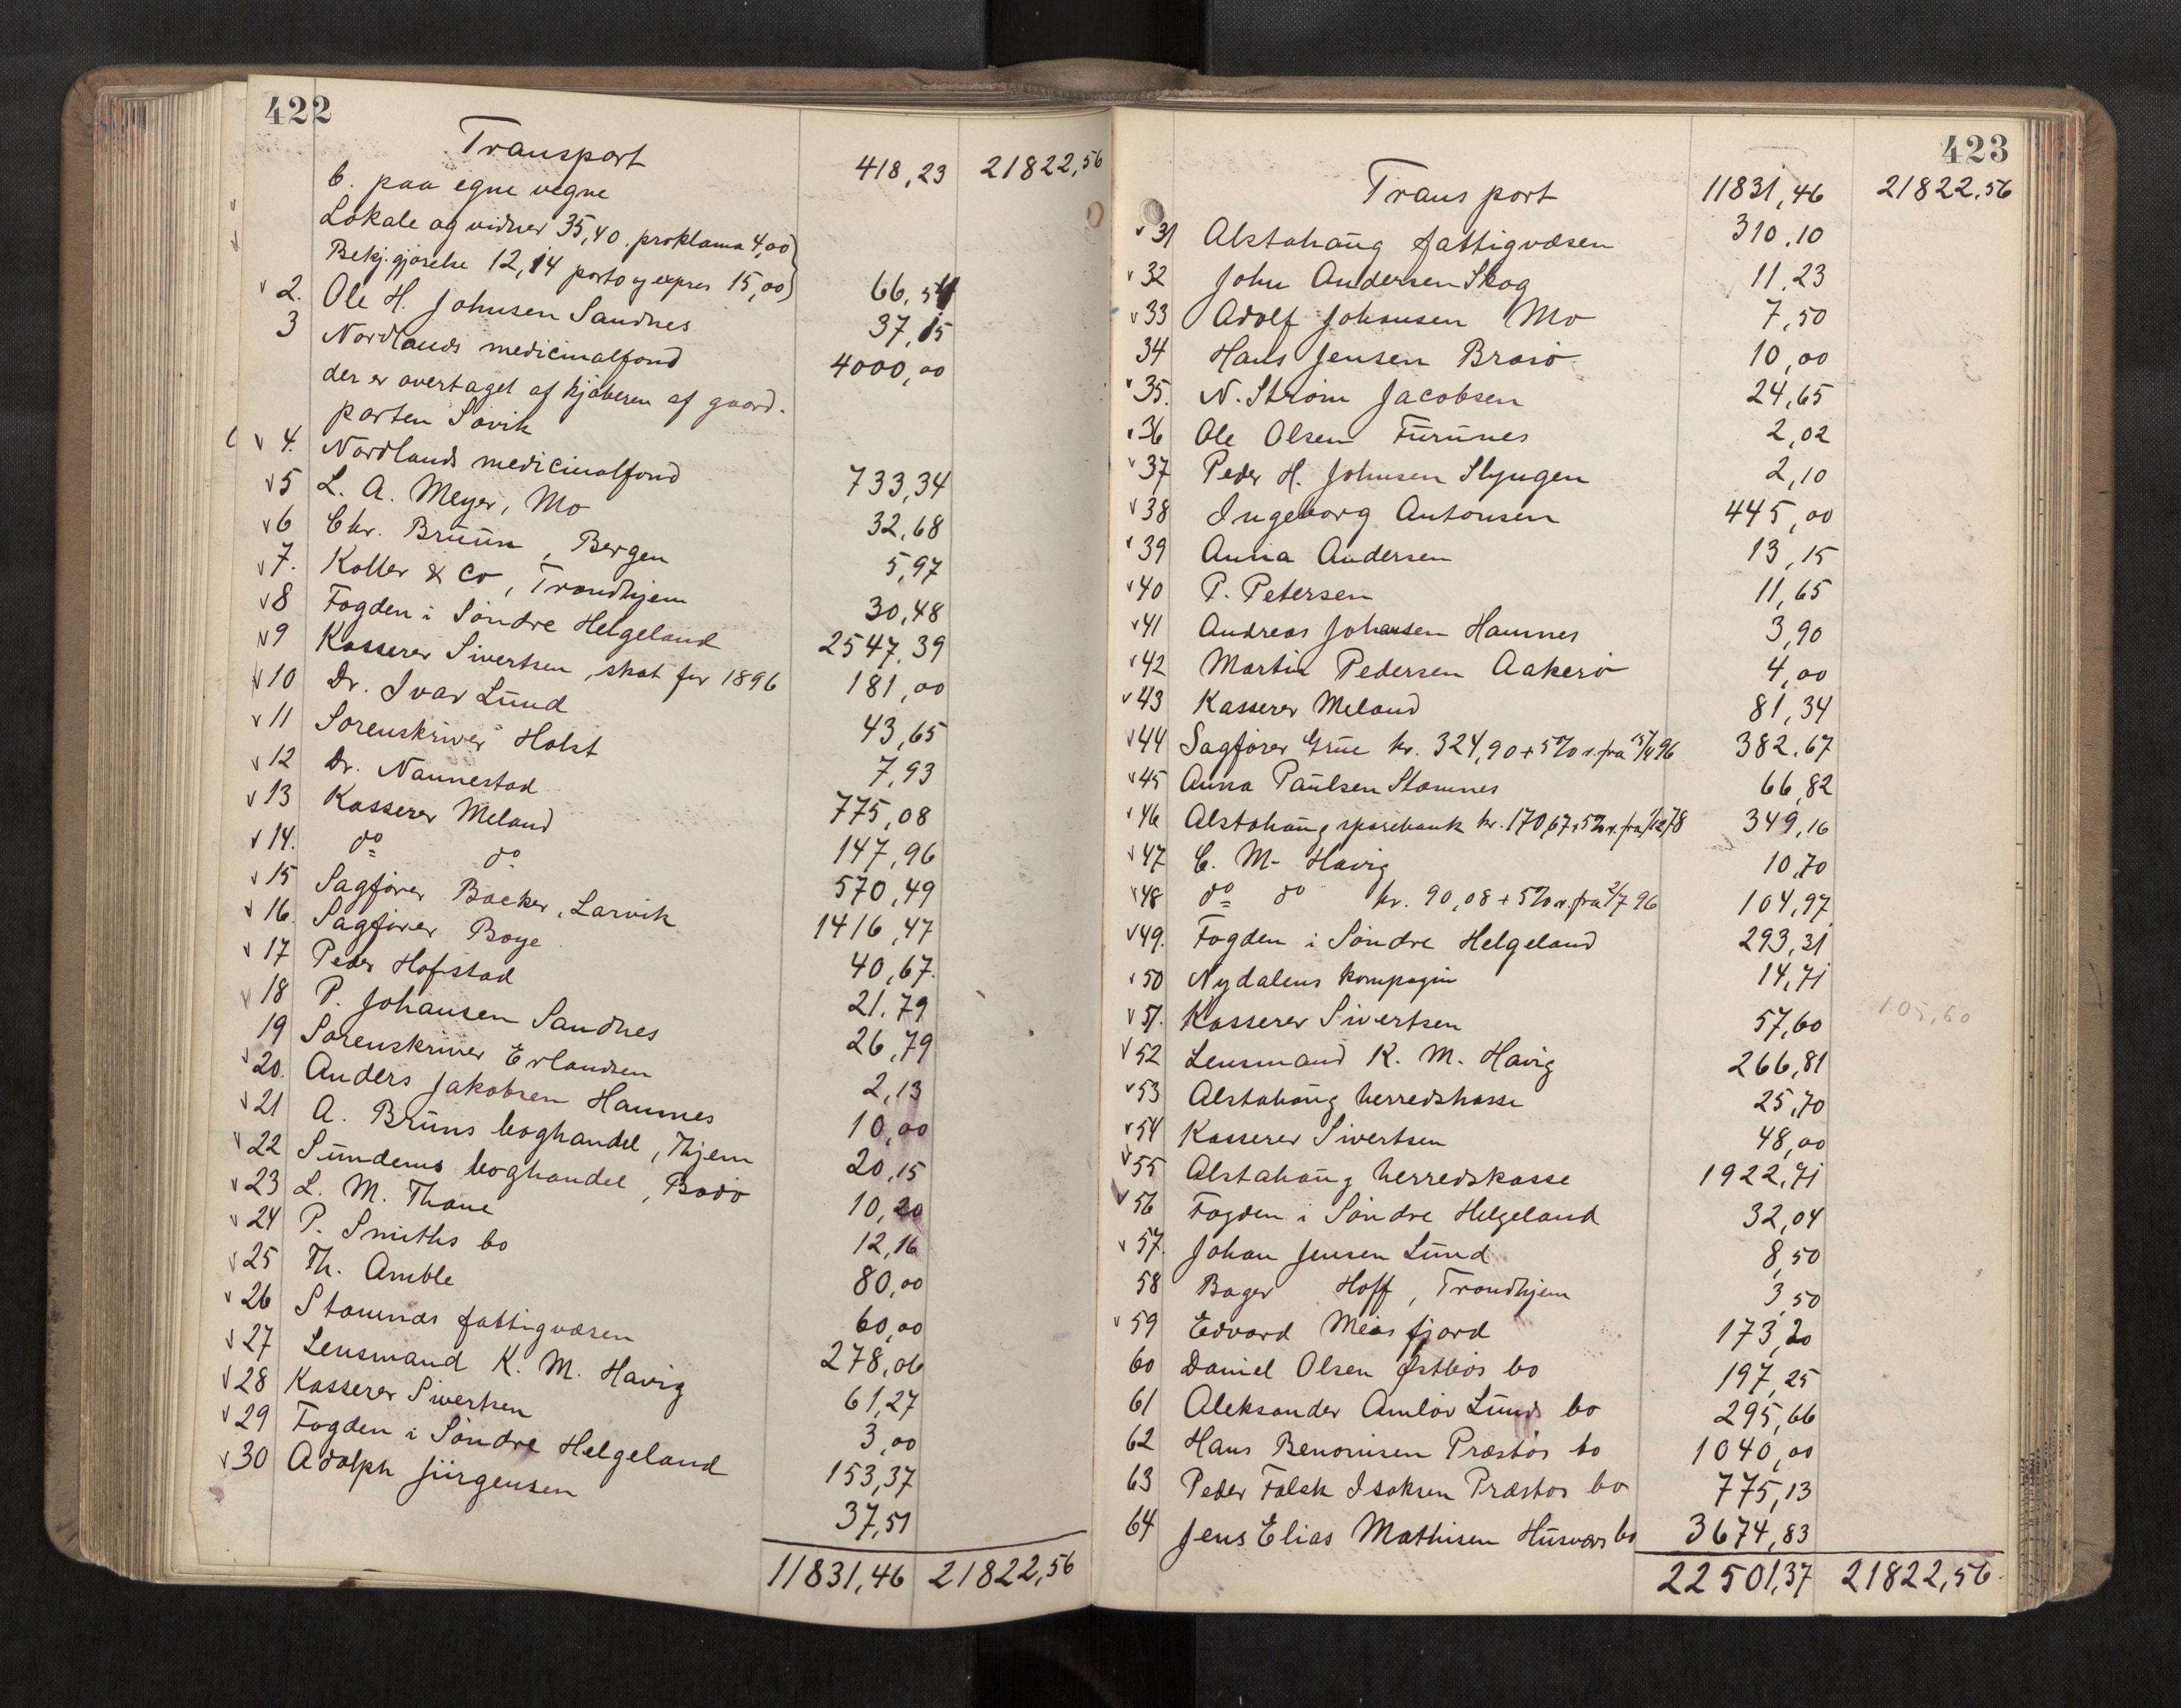 422
Transport 418,23 21822,56
C. paa egne vegne
Lokale og vidner 35,40. proklama 4,00
Bekj.gjørelse 12,14 porto og expres 15,00 66,54
2. Ole H. Johnsen Sandnes 37,15
3 Nordlands medicinalfond 4000,00
der er overtaget af kjøberen af gaard-
parten Søvik
4. Nordlands medicinalfond 733,34
5 L. A. Meyer, Mo 32,68
6 Chr. Bruun, Bergen 5,97
7. Koller & Co, Trondhjem 30,48
8 Fogden i Søndre Helgeland 2547,39
9 Kasserer Sivertsen, skat for 1896 181,00
10 Dr. Ivar Lund 43,65
11 Sorenskriver Holst 7,93
12 Dr. Nannestad 775,08
13 Kasserer Meland 147,96
14. do do 570,49
15 Sagfører Backer, Larvik 1416,47
16. Sagfører Boye 40,67.
17 Peder Hofstad 21,79
18 P. Johansen Sandnes 26,79
19 Sorenskriver Erlandsen 2,13
20. Anders Jakobsen Hamnes 10,00
21 A. Bruns boghandel, Thjem 20,15
22 Sundems boghandel, Bodø 10,20
23 L. M. Thane 12,16
24 P. Smiths bo 80,00
25 Th. Amble 60,00
26 Stamnæs fattigvæsen 278,06
27 Lensmand K. M. Havig 61,27
28 Kasserer Sivertsen 3,00
29 Fogden i Søndre Helgeland 153,37
30 Adolph Jürgensen 37,51
11831,46 21822,56
423
Transport 11831,46 21822,56
31 Alstahaug fattigvæsen 310,10
32 John Andersen Skog 11,23
33 Adolf Johansen Mo 7,50
34 Hans Jensen Brasø 10,00
35. N. Strøm Jacobsen 24,65
36 Ole Olsen Furunes 2,02
37 Peder H. Johnsen Slyngen 2,10
38 Ingeborg Antonsen 445,00
39 Anna Andersen 13,15
40 P. Petersen 11,65
41 Andreas Johansen Hamnes 3,90
42 Martin Pedersen Aakerø 4,00
43 Kasserer Meland 81,34
44 Sagfører Grue kr. 324,90 + 5% r. fra 15/4 96 382,67
45 Anna Paulsen Stamnes 66,82
46 Alstahaug sparebank kr. 170,67 + 5% r. fra 1/12 78 349,16
47 C. M. Havig 10,70
48 do do kr. 90,08 + 5% r. fra 2/7 96 104,97
49. Fogden i Søndre Helgeland 293,31
50 Nydalens kompagni 14,71
51. Kasserer Sivertsen 57,60 105,60
52 Lensmand K. M. Havig 266,81
53 Alstahaug herredskasse 25,70
54 Kasserer Sivertsen 48,00
55 Alstahaug herredskasse 1922,71
56 Fogden i Søndre Helgeland 32,04
57. Johan Jensen Lund 8,50
58 Bager Hoff, Trondhjem 3,50
59 Edvard Meisfjord 173,20
60 Daniel Olsen Østbøs bo 197,25
61 Aleksander Amlov Lunds bo 295,66
62 Hans Benonisen Præstøs bo 1040,00
63 Peder Falsk Isaksen Præstøs bo 775,13
64 Jens Elias Mathisen Husværs bo 3674,83
22501,37 21822,56